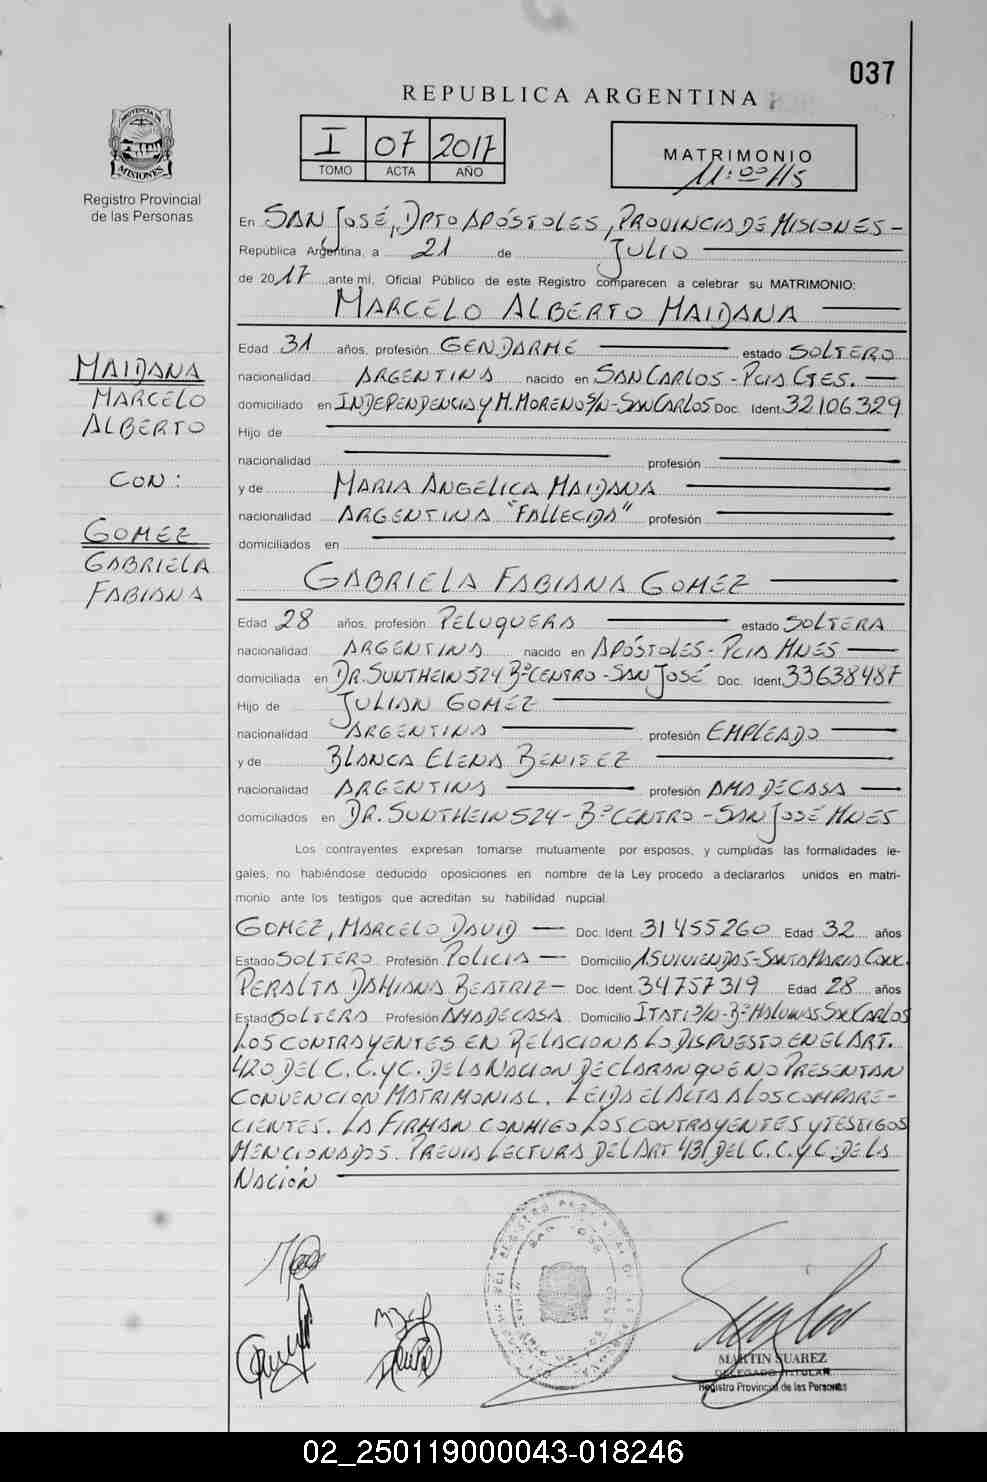 037
REPUBLICA ARGENTINA
PROVINCIA DE
MISIONES
Registro Provincial
de las Personas
I 07 2017
TOMO ACTA AÑO
MATRIMONIO
11:00 HS
En SAN JOSÉ, DPTO APÓSTOLES, PROVINCIA DE MISIONES -
República Argentina, a 21 de JULIO
de 2017 ante mi, Oficial Público de este Registro comparecen a celebrar su MATRIMONIO:
MARCELO ALBERTO MAIDANA
Edad 31 años, profesión GENDARME estado SOLTERO
nacionalidad ARGENTINA nacido en SAN CARLOS - PCIA CTES.
domiciliado en INDEPENDENCIA Y M. MORENO S/N - SAN CARLOS Doc. Ident. 32106329
Hijo de
nacionalidad profesión
y de MARIA ANGELICA MAIDANA
nacionalidad ARGENTINA "FALLECIDA" profesión
domiciliados en
GABRIELA FABIANA GOMEZ
Edad 28 años, profesión PELUQUERA estado SOLTERA
nacionalidad ARGENTINA nacido en APÓSTOLES - PCIA MNES
domiciliada en DR. SUNTHEIN 524 Bº CENTRO - SAN JOSÉ Doc. Ident. 33638487
Hijo de JULIAN GOMEZ
nacionalidad ARGENTINA profesión EMPLEADO
y de BLANCA ELENA BENITEZ
nacionalidad ARGENTINA profesión AMA DE CASA
domiciliados en DR. SUNTHEIN 524 - Bº CENTRO - SAN JOSÉ MNES
Los contrayentes expresan tomarse mutuamente por esposos, y cumplidas las formalidades le-
gales, no habiéndose deducido oposiciones en nombre de la Ley procedo a declararlos unidos en matri-
monio ante los testigos que acreditan su habilidad nupcial.
GOMEZ, MARCELO DAVID Doc. Ident. 31455260 Edad 32 años
Estado SOLTERO Profesión POLICIA Domicilio VIVIENDAS - SANTA MARIA CONC.
PERALTA DAMIANA BEATRIZ - Doc. Ident. 34757319 Edad 28 años
Estado SOLTERA Profesión AMA DE CASA Domicilio ITATI S/N - Bº MALVINAS SAN CARLOS
LOS CONTRAYENTES EN RELACION A LO DISPUESTO EN EL ART.
420 DEL C.C.Y C. DE LA NACION DECLARAN QUE NO PRESENTAN
CONVENCION MATRIMONIAL. LEIDA EL ALTA A LOS COMPARE-
CIENTES. LA FIRMAN CONMIGO LOS CONTRAYENTES Y TESTIGOS
MENCIONADOS. PREVIA LECTURA DEL ART 431 DEL C.C.Y C. DE LA
NACIÓN
MAIDANA
MARCELO
ALBERTO
CON:
GOMEZ
GABRIELA
FABIANA
SAN JOSE
MARTIN SUAREZ
DELEGADO TITULAR
Registro Provincial de las Personas
02_250119000043-018246